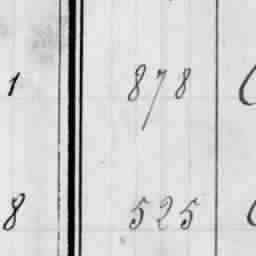 1 878
8 525